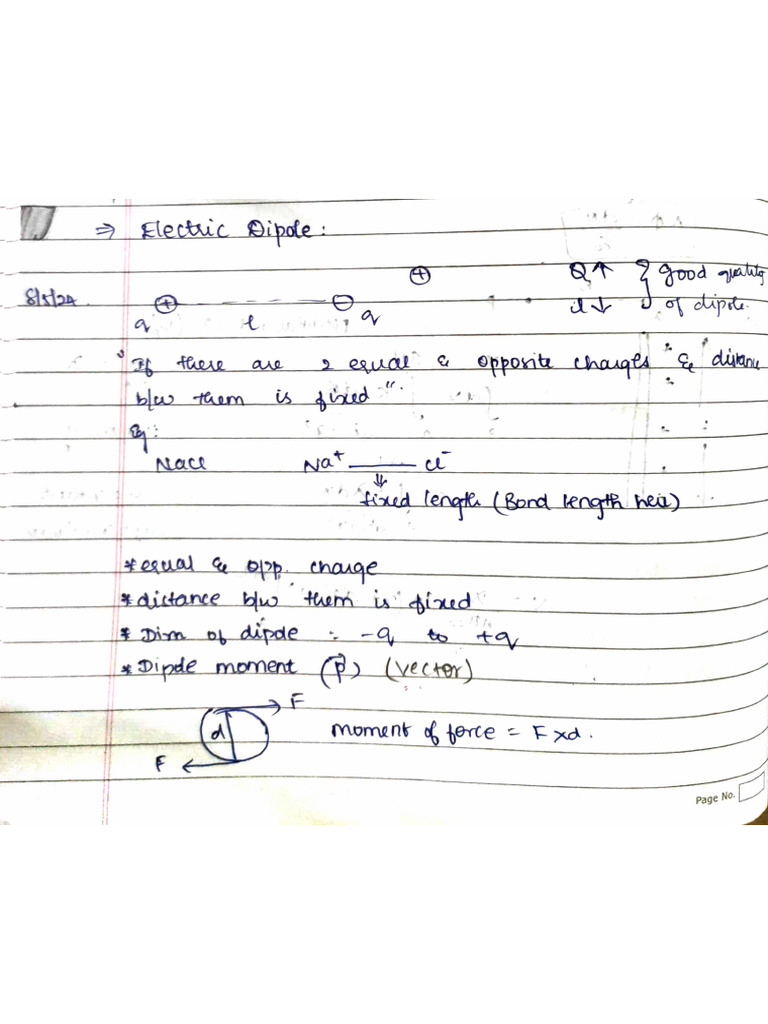 ⇒ Electric Dipole:
⊕ Q↑ } good quality
8/5/24 ⊕ ------ ⊖ l↓ } of dipole
q l q
"If there are 2 equal & opposite charges & distance
b/w them is fixed".
Eg:
NaCl Na⁺ ——— Cl⁻
⇓
fixed length (Bond length here)
* equal & opp. charge
* distance b/w them is fixed
* Dirn of dipole : -q to +q
* Dipole moment (p⃗) (vector)
F
d moment of force = F x d.
F
Page No.